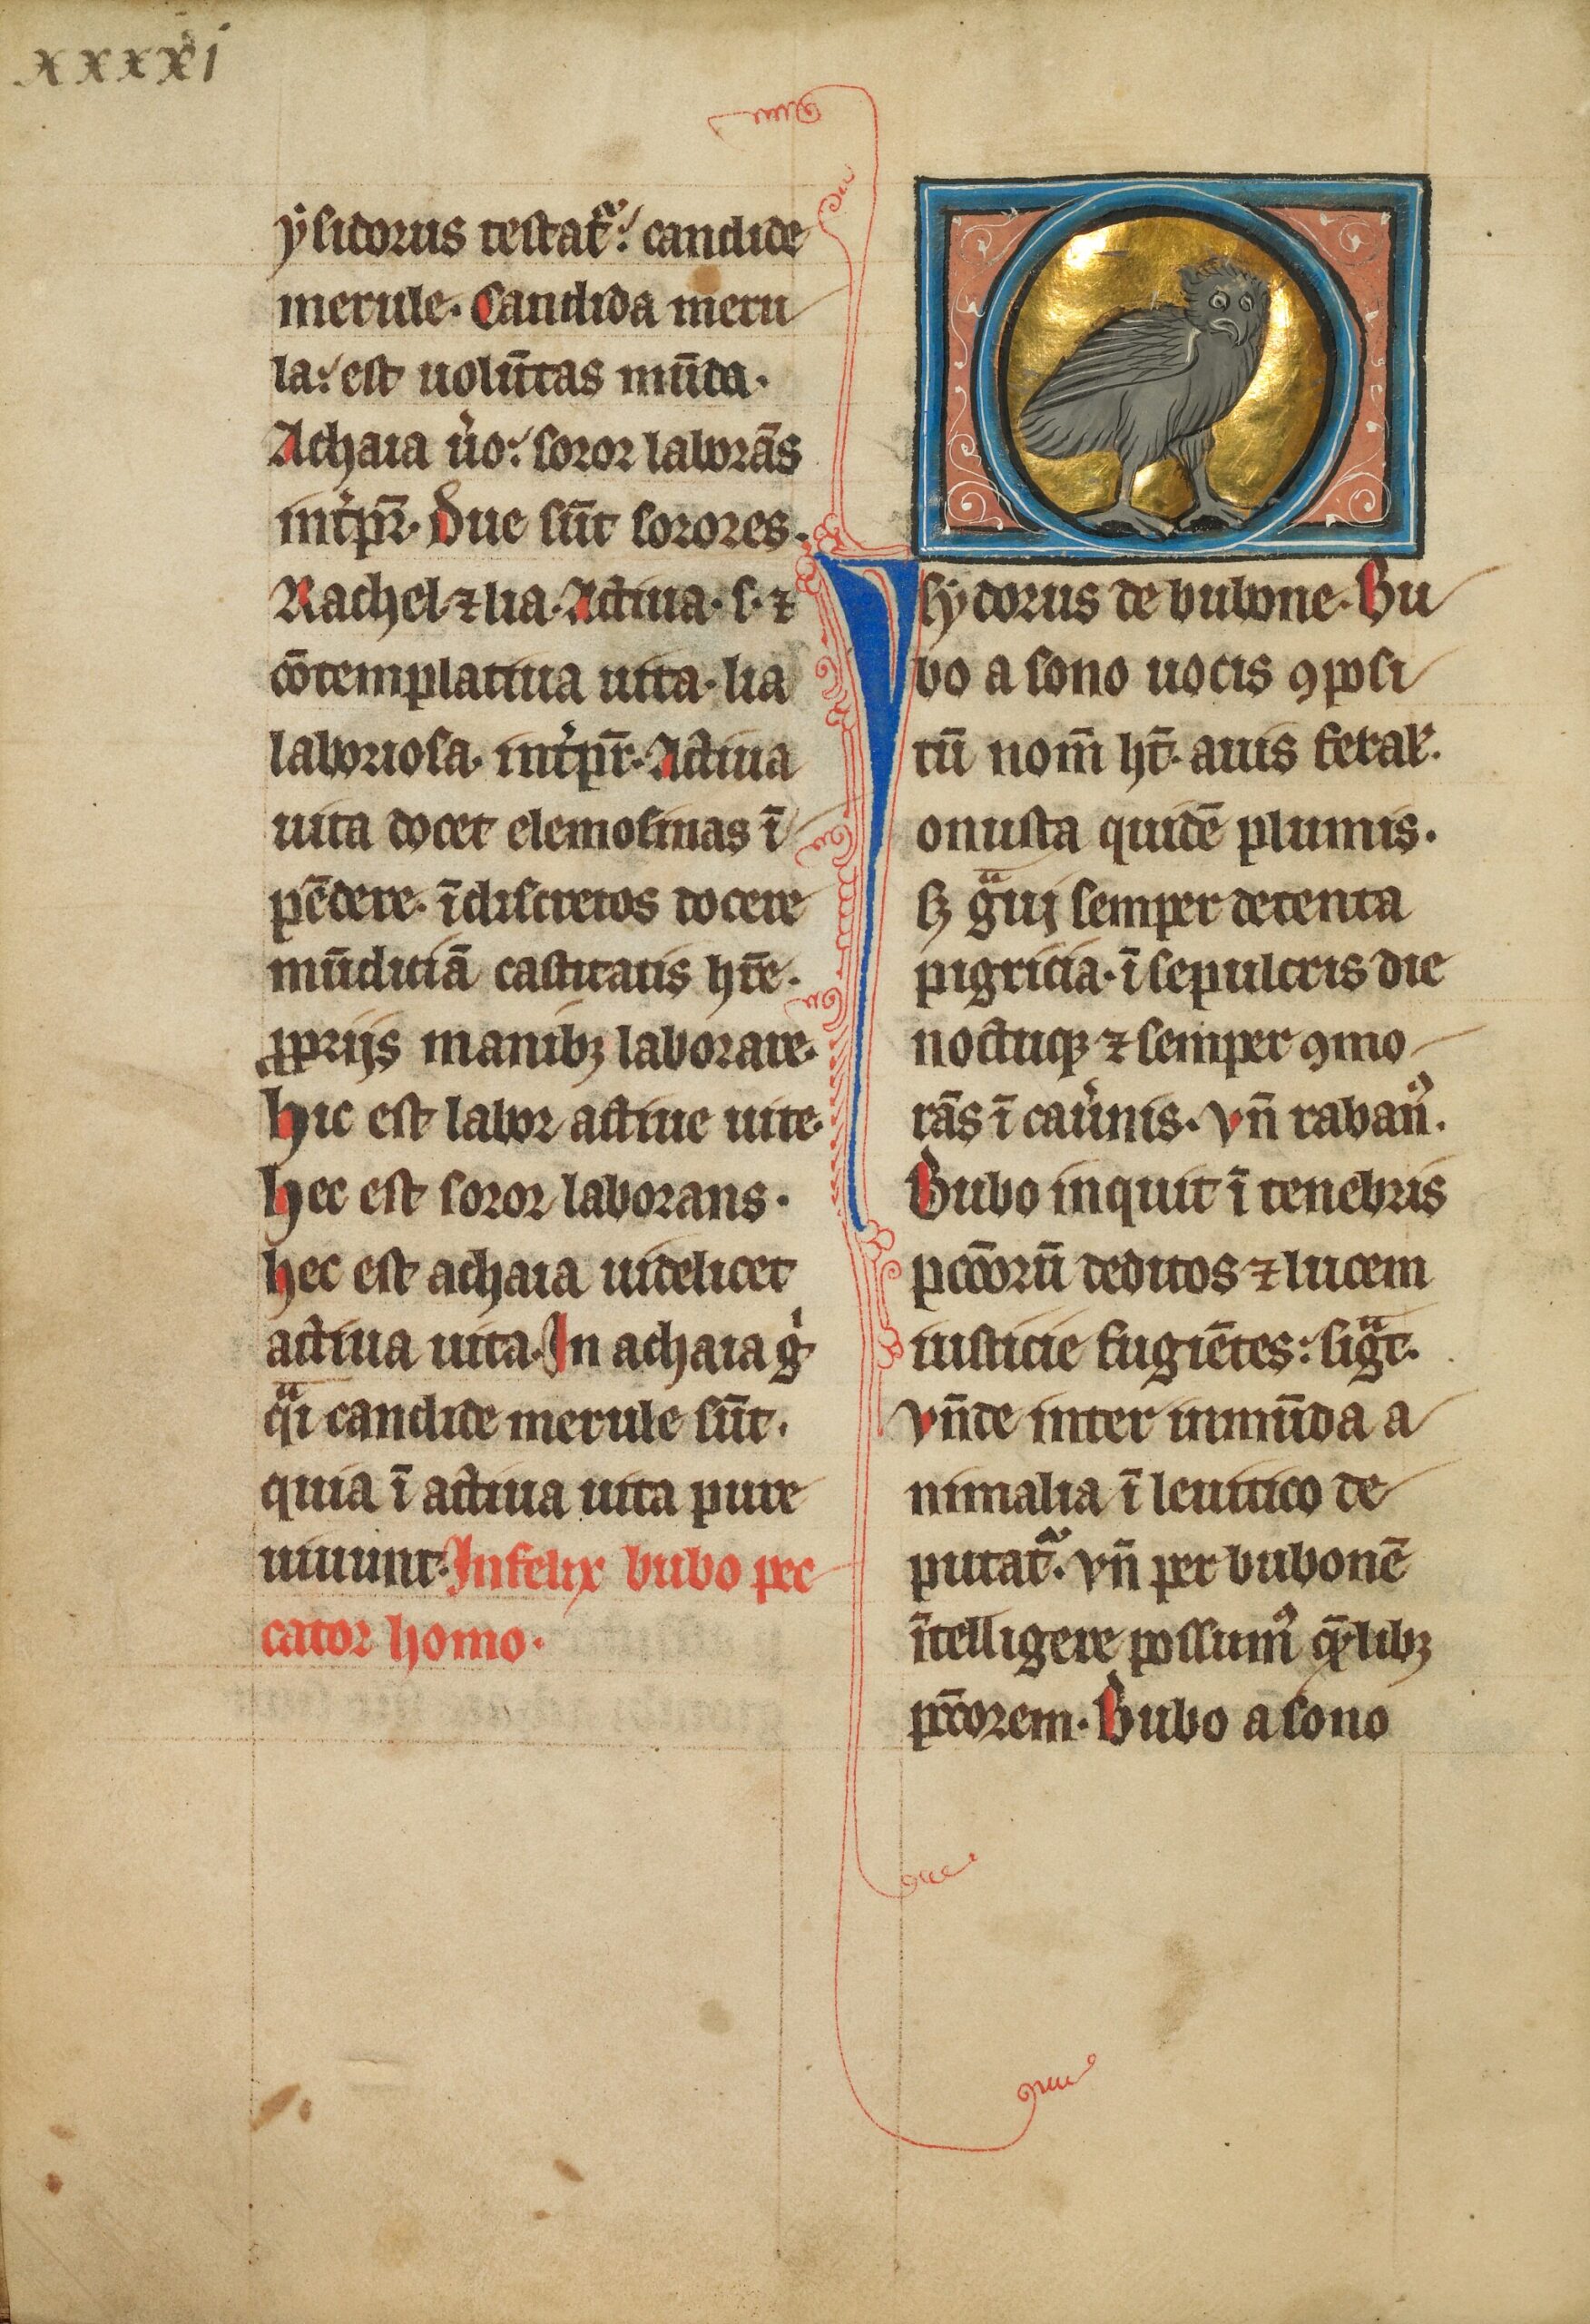 xxxxi
ẏsidorus testat᷒ᷓ: candide
merule. Candida meru
la: est uolūtas mūda.
Achaia u̇o: soror laborās
int̍pr̄. Due sūt sorores.
Rachel ⁊ lia. Actiua. s. ⁊
cōtemplatiua uita. lia
laboriosa. int̍pr̄. Actiua
uita docet elemosinas ī
pēdere. īdiscretos docere
mūditiā castitatis hr̄e.
ꝓprijs manibꝫ laborare.
hic est labor actiue uite.
hec est soror laborans.
hec est achaia uidelicet
actiua uita. In achaia g̍
qᷓi candide merule sūt.
quia ī actiua uita pure
uiuunt. Infelix bubo pec
cator homo.
Isẏdorus de bubone. Bu
bo a sono uocis ꝯposi
tū nom̄ ht̄. auis feral̕.
onusta quidē plumis.
sꝫ gᷓui semper detenta
pigricia. ī sepulcris die
noctuqꝫ ⁊ semper ꝯmo
rās ī cau̍nis. vn̄ raban᷒.
Bubo inquit ī tenebris
pccōrū deditos ⁊ lucem
iusticie fugiētes: sigᷓt.
vn̄de inter inmūda a
nimalia ī leuitico de
putatᷓ. vn̄ per bubonē
ītelligere possum᷒ qͣ̄libꝫ
pccorem. Bubo a sono